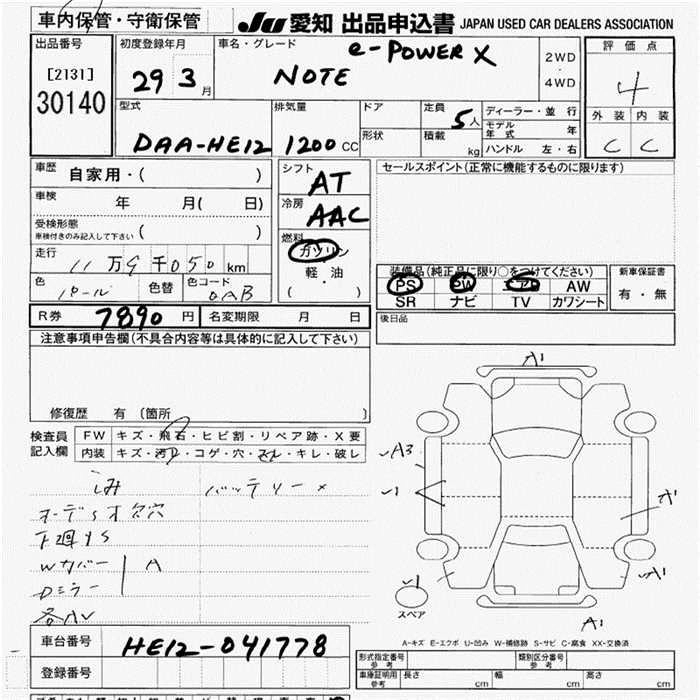 車内保管・守衛保管
JU 愛知 出品申込書 JAPAN USED CAR DEALERS ASSOCIATION
出品番号
[2131]
30140
初度登録年月
29 3 月
車名・グレード
e-POWER X
NOTE
2WD
・
4WD
評価点
4
外装 内装
C C
型式
DAA-HE12
排気量
1200 cc
ドア
形状
定員
5人
積載
kg
ディーラー・並行
モデル年式 年
ハンドル 左・右
車歴
自家用・( )
車検
年 月( 日)
受検形態
車検付きのみ記入して下さい ( )
走行
11万9千050km
色
パール
色替
色コード
QAB
シフト
AT
冷房
AAC
燃料
ガソリン
・
軽・油
( )
セールスポイント(正常に機能するものに限ります)
装備品(純正品に限り○をつけてください)
PS PW エアB AW
SR ナビ TV カワシート
新車保証書
有・無
R券 7890 円 名変期限 月 日
後日品
注意事項申告欄(不具合内容等は具体的に記入して下さい)
修復歴 有 (箇所 )
検査員
記入欄
FW キズ・飛石・ヒビ割・リペア跡・X要
内装 キズ・汚れ・コゲ・穴・スレ・キレ・破レ
バッテリー×
オーディオ欠穴
下廻りS
Wカバー A
Dミラー
各AU
A1
A3
1
A1
1
A1
A1
スペア
A-キズ E-エクボ U-凹み W-補修跡 S-サビ C-腐食 XX-交換済
車台番号 HE12-041778
登録番号
形式指定番号
参考
類別区分番号
参考
車庫証明用
参考
長さ cm 幅 cm 高さ cm